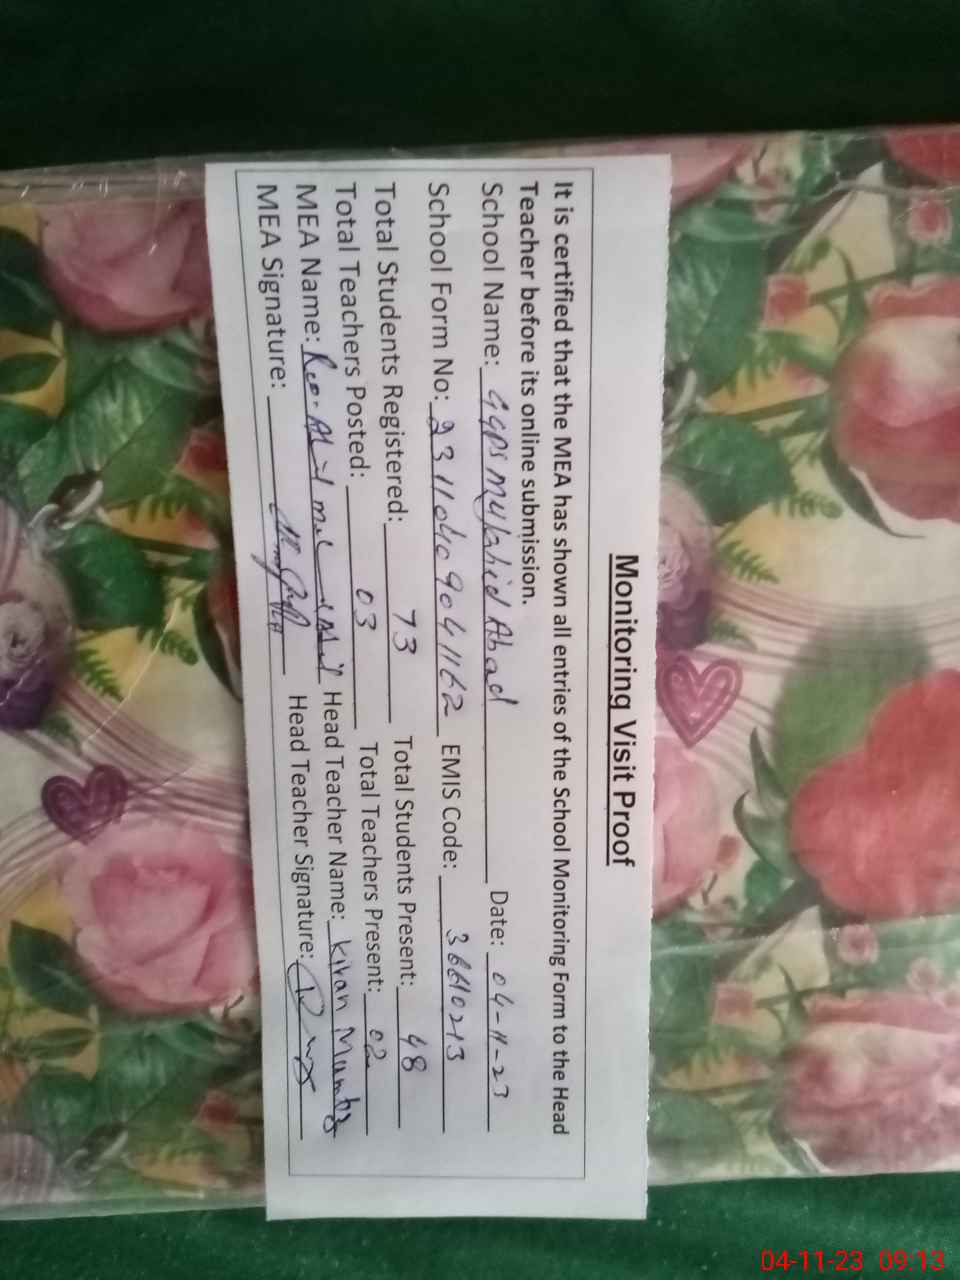 Monitoring Visit Proof
It is certified that the MEA has shown all entries of the School Monitoring Form to the Head
Teacher before its online submission.
School Name: GGPS Mujahid Abad Date: 04-11-23
School Form No: 23110409041162 EMIS Code: 36610213
Total Students Registered: 73 Total Students Present: 48
Total Teachers Posted: 03 Total Teachers Present: 02
MEA Name: Head Teacher Name: Kiran Mumtaz
MEA Signature: Head Teacher Signature:
04-11-23 09:13